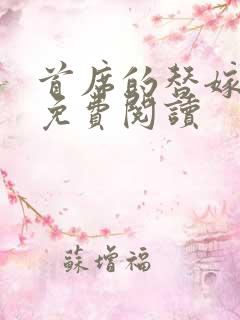 首席的替嫁
免費閱讀
蘇增福